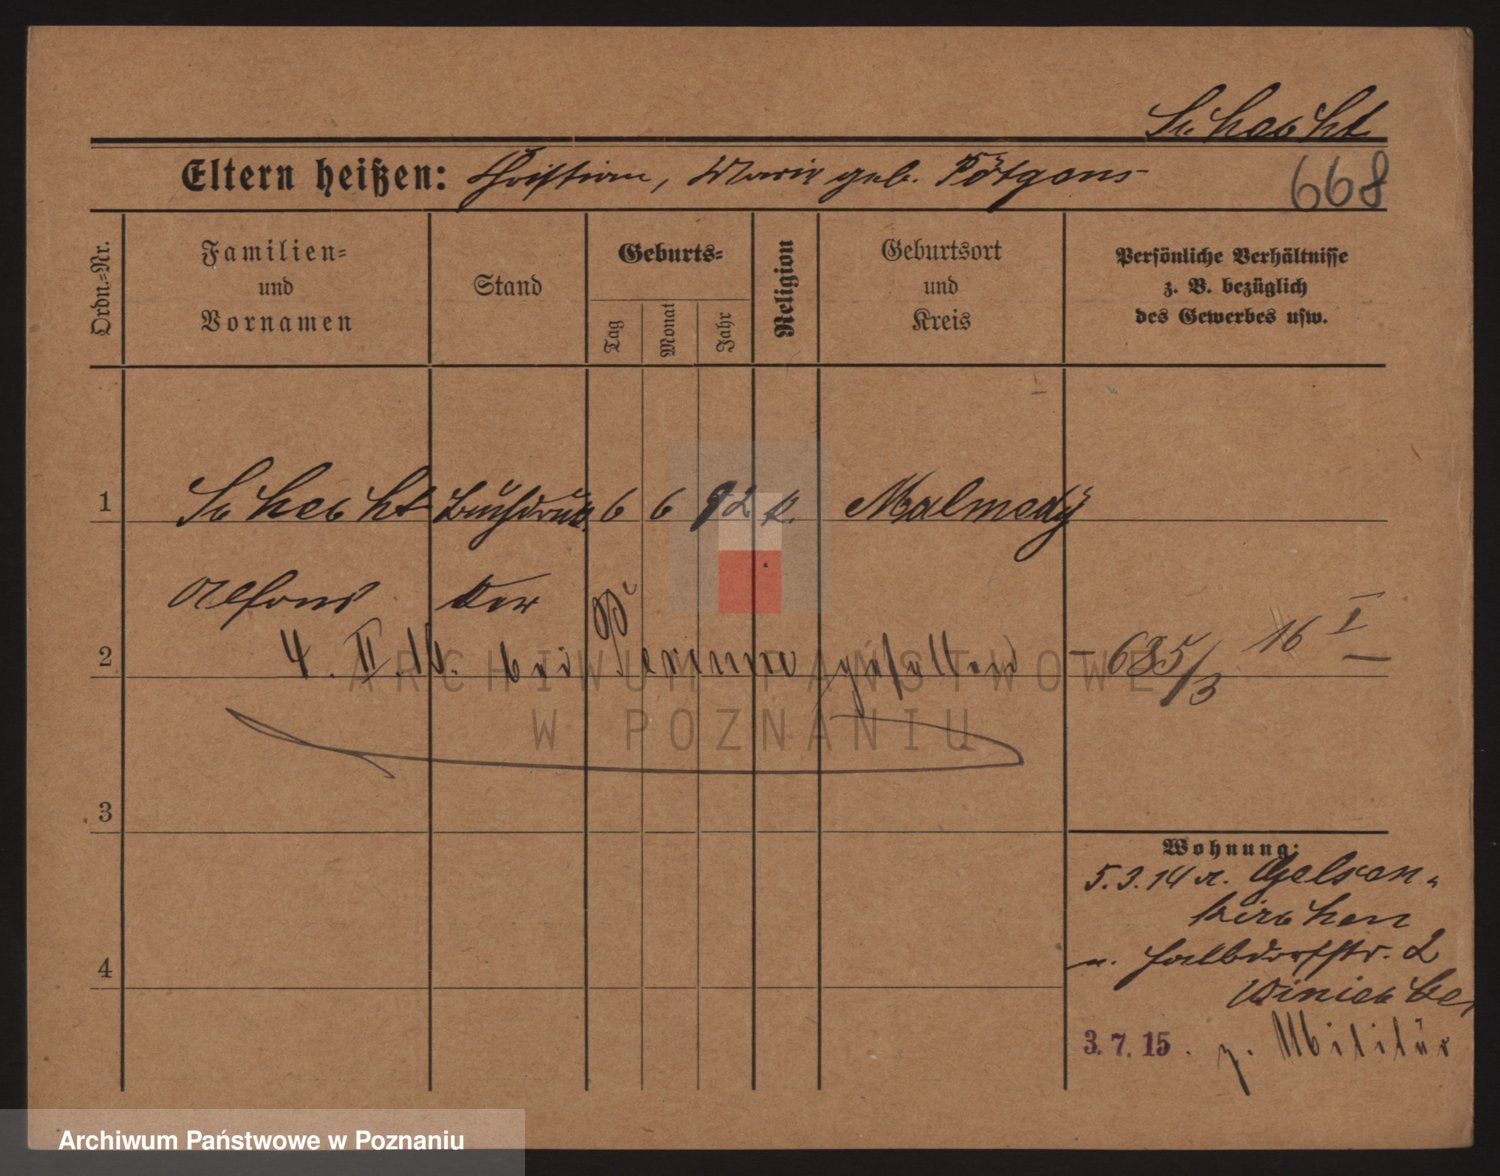 Schecht
Eltern heißen: Christian, Marie geb. Pötgens
668
Ordn.-Nr.
Familien-
und
Vornamen
Stand
Geburts-
Tag
Monat
Jahr
Religion
Geburtsort
und
Kreis
Persönliche Verhältnisse
z. B. bezüglich
des Gewerbes usw.
1 Schecht Buchdruk 6 6 92 k. Malmedy
Alfons ker
2 4. II. 16. bei gefallen – 685/3 16 I
ARCHIWUM PAŃSTWOWE
W POZNANIU
3
Wohnung:
5.3.14 v. Gelsen-
kirchen
n. Halbdorfstr. 2
4
3.7.15. z. Militär
Archiwum Państwowe w Poznaniu